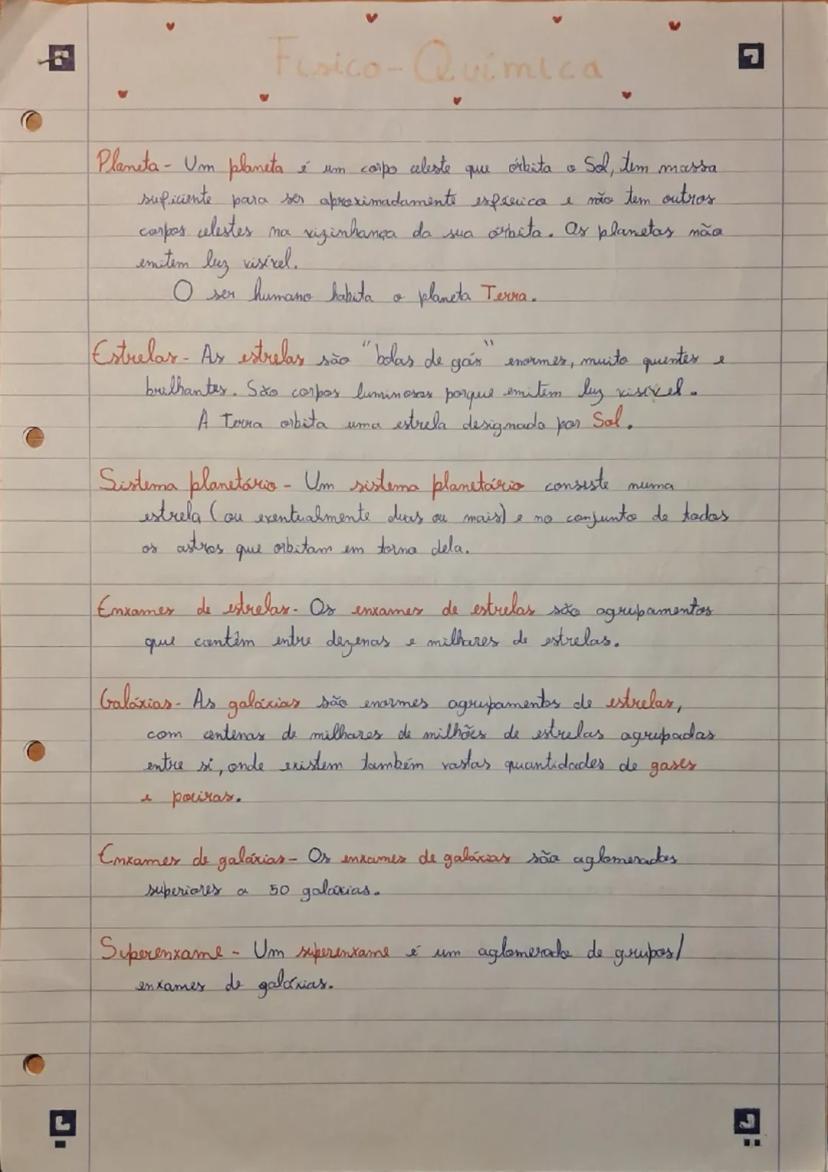 Físico-Química
Planeta - Um planeta é um corpo celeste que órbita o Sol, tem massa
suficiente para ser aproximadamente esférica e não tem outros
corpos celestes na vizinhança da sua órbita. Os planetas não
emitem luz visível.
O ser humano habita o planeta Terra.
Estrelas - As estrelas são "bolas de gás" enormes, muito quentes e
brilhantes. São corpos luminosos porque emitem luz visível.
A Terra orbita uma estrela designada por Sol.
Sistema planetário - Um sistema planetário consiste numa
estrela (ou eventualmente duas ou mais) e no conjunto de todos
os astros que orbitam em torno dela.
Enxames de estrelas - Os enxames de estrelas são agrupamentos
que contêm entre dezenas e milhares de estrelas.
Galáxias - As galáxias são enormes agrupamentos de estrelas,
com centenas de milhares de milhões de estrelas agrupadas
entre si, onde existem também vastas quantidades de gases
e poeiras.
Enxames de galáxias - Os enxames de galáxias são aglomerados
superiores a 50 galáxias.
Superenxame - Um superenxame é um aglomerado de grupos/
enxames de galáxias.